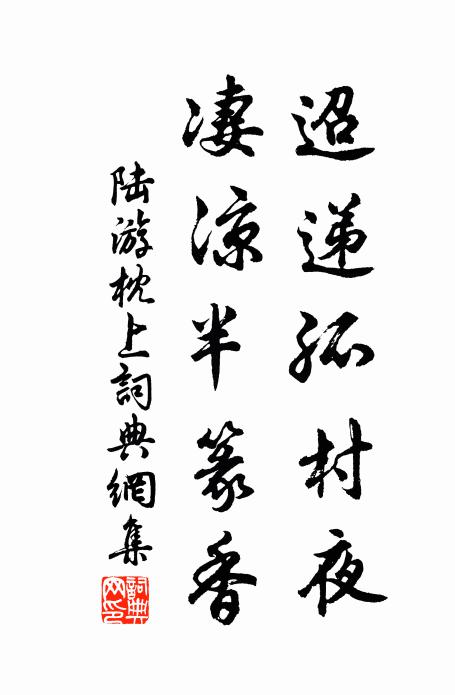 迢递孤村夜
凄涼半篆香
陆游枕上詞典網集
詞典网印